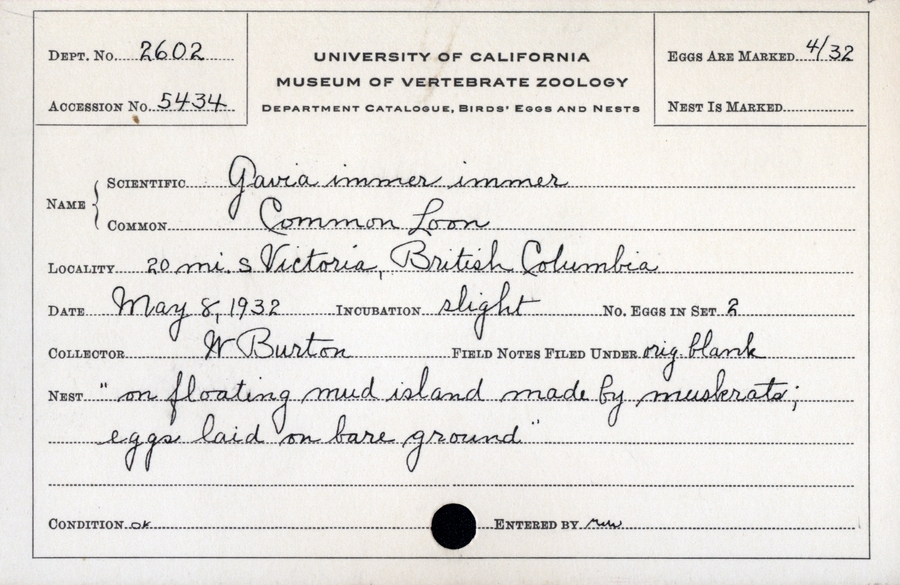 DEPT. No. 2602
ACCESSION No. 5434
UNIVERSITY OF CALIFORNIA
MUSEUM OF VERTEBRATE ZOOLOGY
DEPARTMENT CATALOGUE, BIRDS' EGGS AND NESTS
EGGS ARE MARKED 4/32
NEST IS MARKED
NAME { SCIENTIFIC Gavia immer immer
COMMON Common Loon
LOCALITY 20 mi. S Victoria, British Columbia
DATE May 8, 1932 INCUBATION slight No. EGGS IN SET 2
COLLECTOR W Burton FIELD NOTES FILED UNDER orig. blank
NEST "on floating mud island made by muskrats;
eggs laid on bare ground"
CONDITION OK ENTERED BY